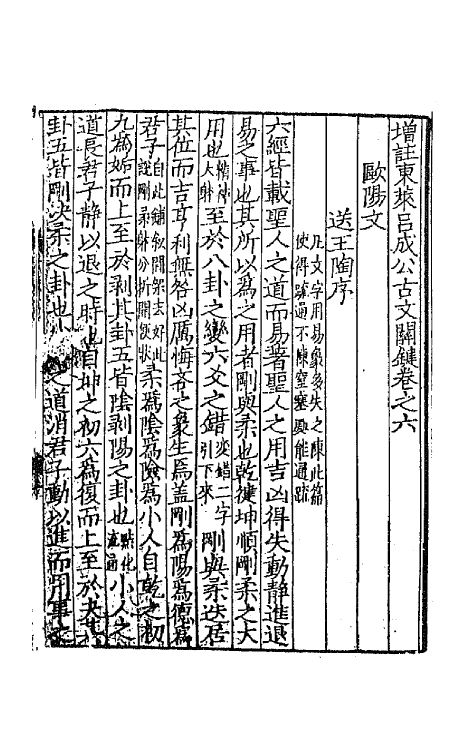 增註東萊呂成公古文關鍵卷之六
歐陽文
送王陶序
凡文字用易象多失之陳此篇
使得疏通不陳窒塞處能通疏
六經皆載聖人之道而易著聖人之用吉凶得失動靜進退
易之事也其所以為之用者剛與柔也乾健坤順剛柔之大
用也至於八卦之變六爻之錯剛與柔迭居
其位而吉亨利無咎凶厲悔吝之象生焉蓋剛為陽為德為
君子柔為陰為險為小人自乾之初
九為姤而上至於剝其卦五皆陰剝陽之卦也小人之
道長君子靜以退之時也自坤之初六為復而上至於夬其
卦五皆剛決柔之卦也小之道消君子動以進而用事之